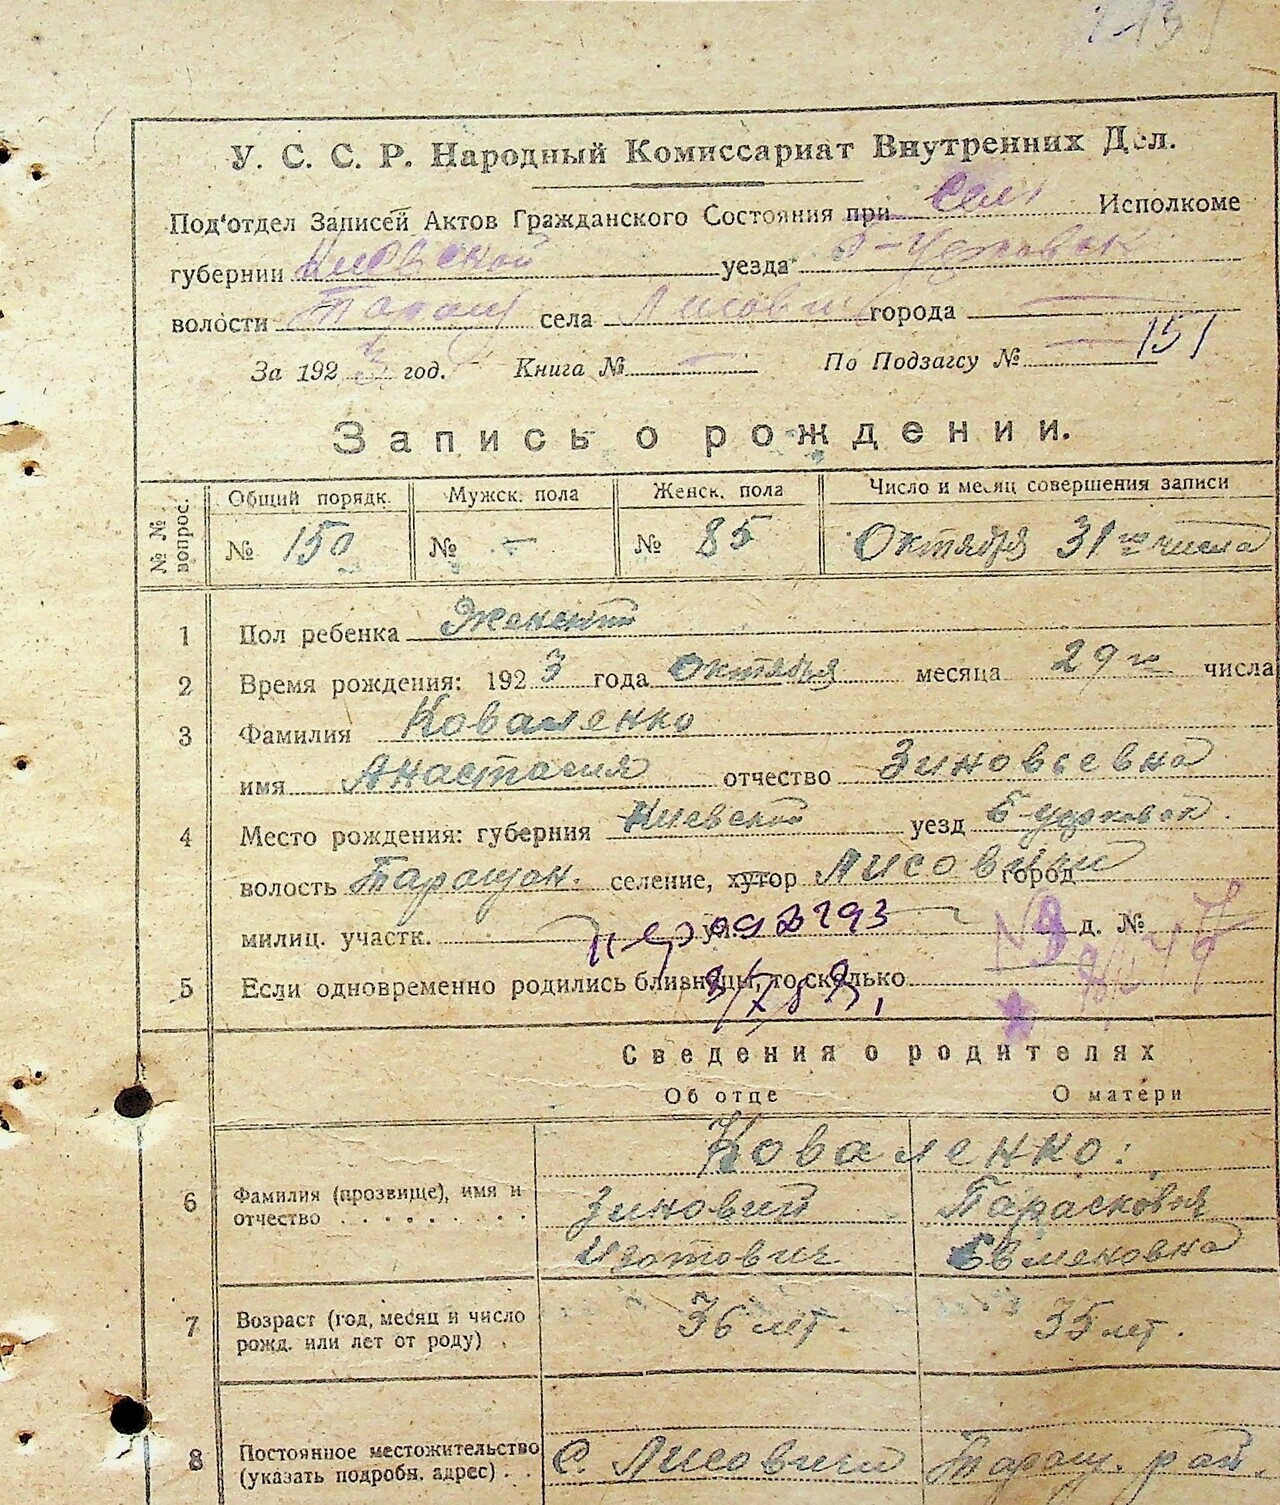 151
У. С. С. Р. Народный Комиссариат Внутренних Дел.
Под'отдел Записей Актов Гражданского Состояния при Сел Исполкоме
губернии Киевской уезда Б-Церковск
волости Таращ села Лисовичи города
За 1923 год. Книга № - По Подзагсу №
Запись о рождении.
№ № вопрос. Общий порядк. Мужск. пола Женск. пола Число и месяц совершения записи
№ 150 № - № 85 Октября 31го числа
1 Пол ребенка Женский
2 Время рождения: 1923 года Октября месяца 29го числа
3 Фамилия Коваленко
имя Анастасия отчество Зиновьевна
4 Место рождения: губерния Киевской уезд Б-Церковск.
волость Таращан. селение, хутор Лисовичи город
милиц. участк. ул. д. №
5 Если одновременно родились близнецы, то сколько
Сведения о родителях
Об отце О матери
Коваленко:
6 Фамилия (прозвище), имя и отчество Зиновий Парасковья
Изотович Евменовна
7 Возраст (год, месяц и число рожд. или лет от роду) 36 лет. 35 лет.
8 Постоянное местожительство (указать подробн. адрес) С. Лисовичи Таращ. рай.